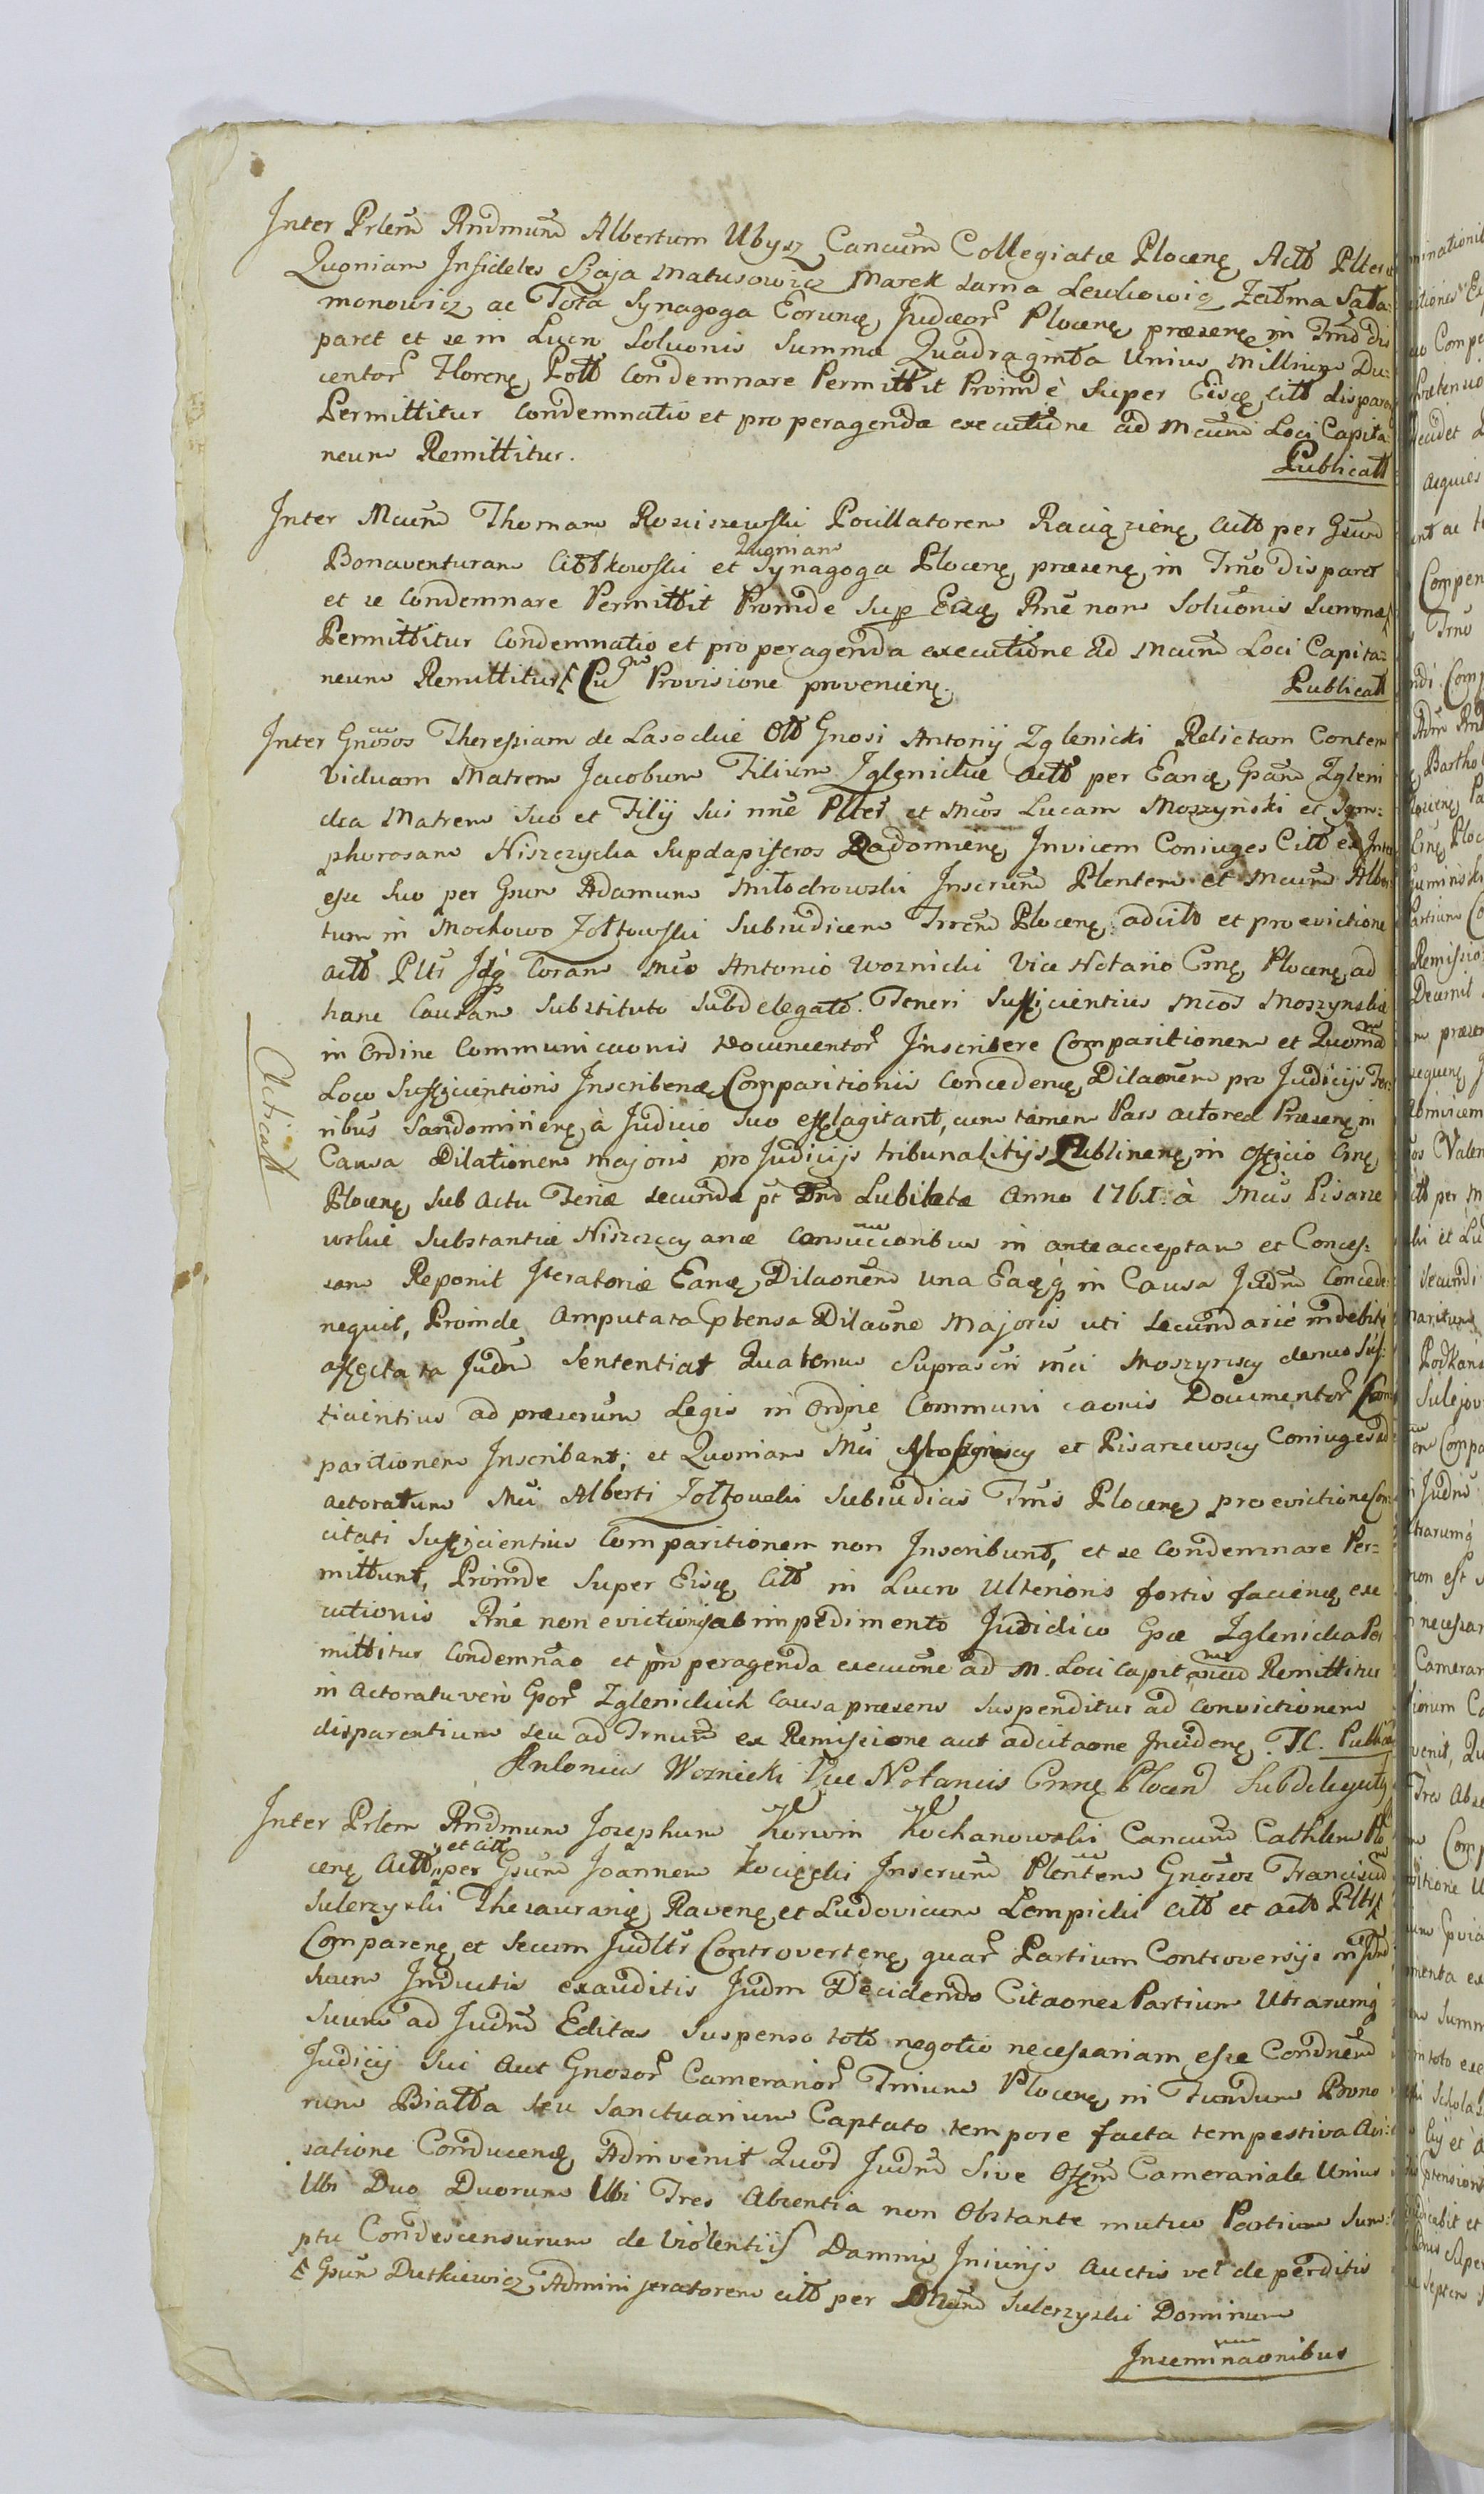 Inter Prlem Rndmum Albertum Ubysz Cancum Collegiatæ Plocenę Actt Plten
Quoniam Infideles Szaja Matusowicz Marek Lama Lewkowicz Zalma Sala:
monowicz ac Tota Synagoga Eorunę Judæor Plocenę præsenę in Trnd dis
paret et se in Lucro Soluonis Summæ Quadraginta Unius Millium Du:
centor Florenę Poltt Condemnare Permittit Proindè Super Eisę Citt disparen
Permittitur Condemnatio et pro peragenda executidne ad Mcum Loci Capita:
neum Remittitur. Publicatt
Inter Mcum Thomam Rosciszewski Pocillatorem Raciązienę Actt per Gsum
Bonaventuram Cittkowski et Quoniam Synagoga Plocenę præsenę in Trno disparet
et se Condemnare Permittit Proinde Sup Eisę Rne non Soluonis Summæ
Permittitur Condemnatio et pro peragenda executidne ad Mcum Loci Capita:
neum Remittitur Cum Provisione provenienę. Publicatt
Inter Gnosos Theresiam de Lasockie Ott Gnosi Antonij Zglenicki Relictam Conten
viduam Matrem Jacobum Filium Zglenickie Actt per Eanę Gsam Zgleni
cka Matrem Suo et Filij Sui nne Pltes et Mcos Lucam Moszynski et Sym:
phorosam Niszczycka Supdapiferos Radomienę Invicem Coniuges Citt ex Inter
esse Suo per Gsum Adamum Miłodrowski Inscrum Plentem et Mcum Alber
tum in Mochowo Zołtowski Subiudicem Trrem Plocenę adcitt et pro evictione
actt Plts Idq Coram Mco Antonio Woznicki Vice Notario Crnę Plocenę ad
hanc Causam Substituto Subdelegatt. Teneri Sufficientius Mcos Moszynskie
in Ordine Communicaonis Documentor Inscribere Comparitionem et Quoniam
Loco Sufficientioris Inscribenæ Comparitionis Concedenę Dilaonem pro Judicijs Ter:
ribus Sandomirienę à Judicio Suo efflagitant, cum tamen Pars actorea Præsenę in
Causa Dilationem majoris pro Judicijs tribunalitijs Lublinenę in Officio Crnę
Plocenę Sub Actu Feriæ Secundæ pt Dnd Jubilate Anno 1761. à Mcis Pisarze
wskie Substantiæ Niszczycyanæ Consuccoribus in ante acceptam et Conces:
sam Reponit Iteratoriæ Eanę Dilaonem una Eaęq in Causa Judm Concede:
nequit, Proinde Amputata ptensa Dilaone Majoris uti Secundarie indebite
affecta ta Judm Sententiat Quatenus Suprascri Mci Moszynscy denuo Suf:
ticientius ad præserum Legis in Ordine Communi caonis Documentor Com
paritionem Inscribant; et Quoniam Mci Moszynscy et Pisarzewscy Coniuges ad
actoratum Mci Alberti Zołtowski Subiudicis Trrnis Plocenę pro evictione Con
citati Sufficientius Comparitionem non Inscribunt, et se Condemnare Per=
mittunt, Proinde Super Eisę Citt in Lucro Ulterioris fortis facienę exe
cutionis Rne non evictionis ab impedimento Juridico Gsæ Zglenicka Per
mittitur Condemnao et pro peragenda execuone ad M. Loci Capitaneum Remittitur
in Actoratu verò Gsor Zglenickich Causa præsens Suspenditur ad convictionem
disparentium seu ad Trnum ex Remissione aut adcitaone Incidenę. T.C. Public
Antonius Woznicki Vice Notarius Crnnę Plocen Subdelegatq
Acticatt
Inter Prlem Rndmum Josephum Korwin Kochanowski Cancum Cathlem Plo
cenę Actt et citt per Gsum Joannem Kocięcki Inscrum Plentem Gnosos Franciscum
Sulerzyski Thesaurarię Ravenę et Ludovicum Lempicki citt et actt Plts
Comparenę et Secum Judlts Controvertenę quar Partium Controversijs in Jud
Suum Inductis exauditis Judm Decidendo Citaones Partium Utrarumq
Suum ad Judm Editas Suspenso toto negotio necessariam esse Condnem
Judicij Sui Aut Gnosor Camerarior Trrium Plocenę in Fundum Bono
rum Białła seu Sanctuarium Captato tempore facta tempestiva Avi:
satione Conducenę Adinvenit Quod Judm Sive Offm Camerariale Unius
Ubi Duo Duorum Ubi Tres Absentia non Obstante mutuo Partium Sum:
ptu Condescensurum de Violentijs Damnis Iniurijs Auctis vel deperditis
Gsum Dutkiewicz Administratorem citt per Sulerzyski Dominum
Inseminaonibus